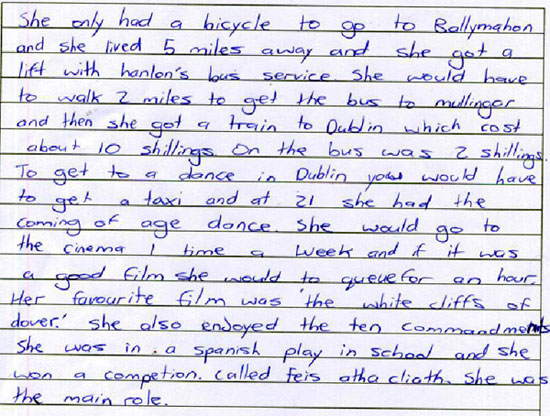 She only had a bicycle to go to Ballymahon
and she lived 5 miles away and she got a
lift with hanlon's bus service. She would have
to walk 2 miles to get the bus to mullingar
and then she got a train to Dublin which cost
about 10 shillings. On the bus was 2 shillings.
To get to a dance in Dublin you would have
to get a taxi and at 21 she had the
coming of age dance. She would go to
the cinema 1 time a week and if it was
a good film she would to queue for an hour.
Her favourite film was 'the white cliffs of
dover.' She also enjoyed the ten commandments
She was in a spanish play in school and she
won a competion. called feis atha cliath. She was
the main role.